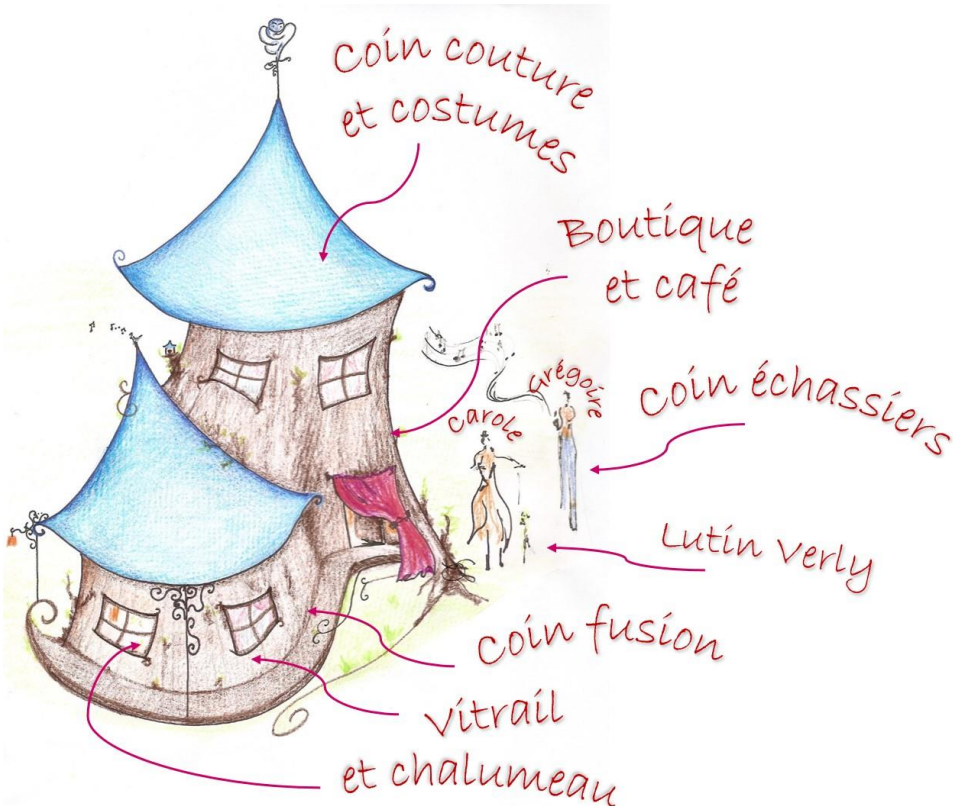 Coin couture
et costumes
Boutique
et café
Grégoire
Carole
Coin échassiers
Lutin Verly
Coin fusion
Vitrail
et chalumeau